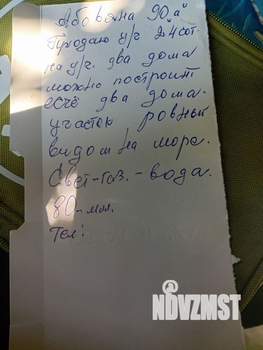 Абовяна 90 "а"
Продаю уч 24 сот.
на уч. два дома
можно построит
есчё два дома.
участок ровный
видом на море.
Свет-газ.-вода.
80-мл.
Тел:
NDVZMST